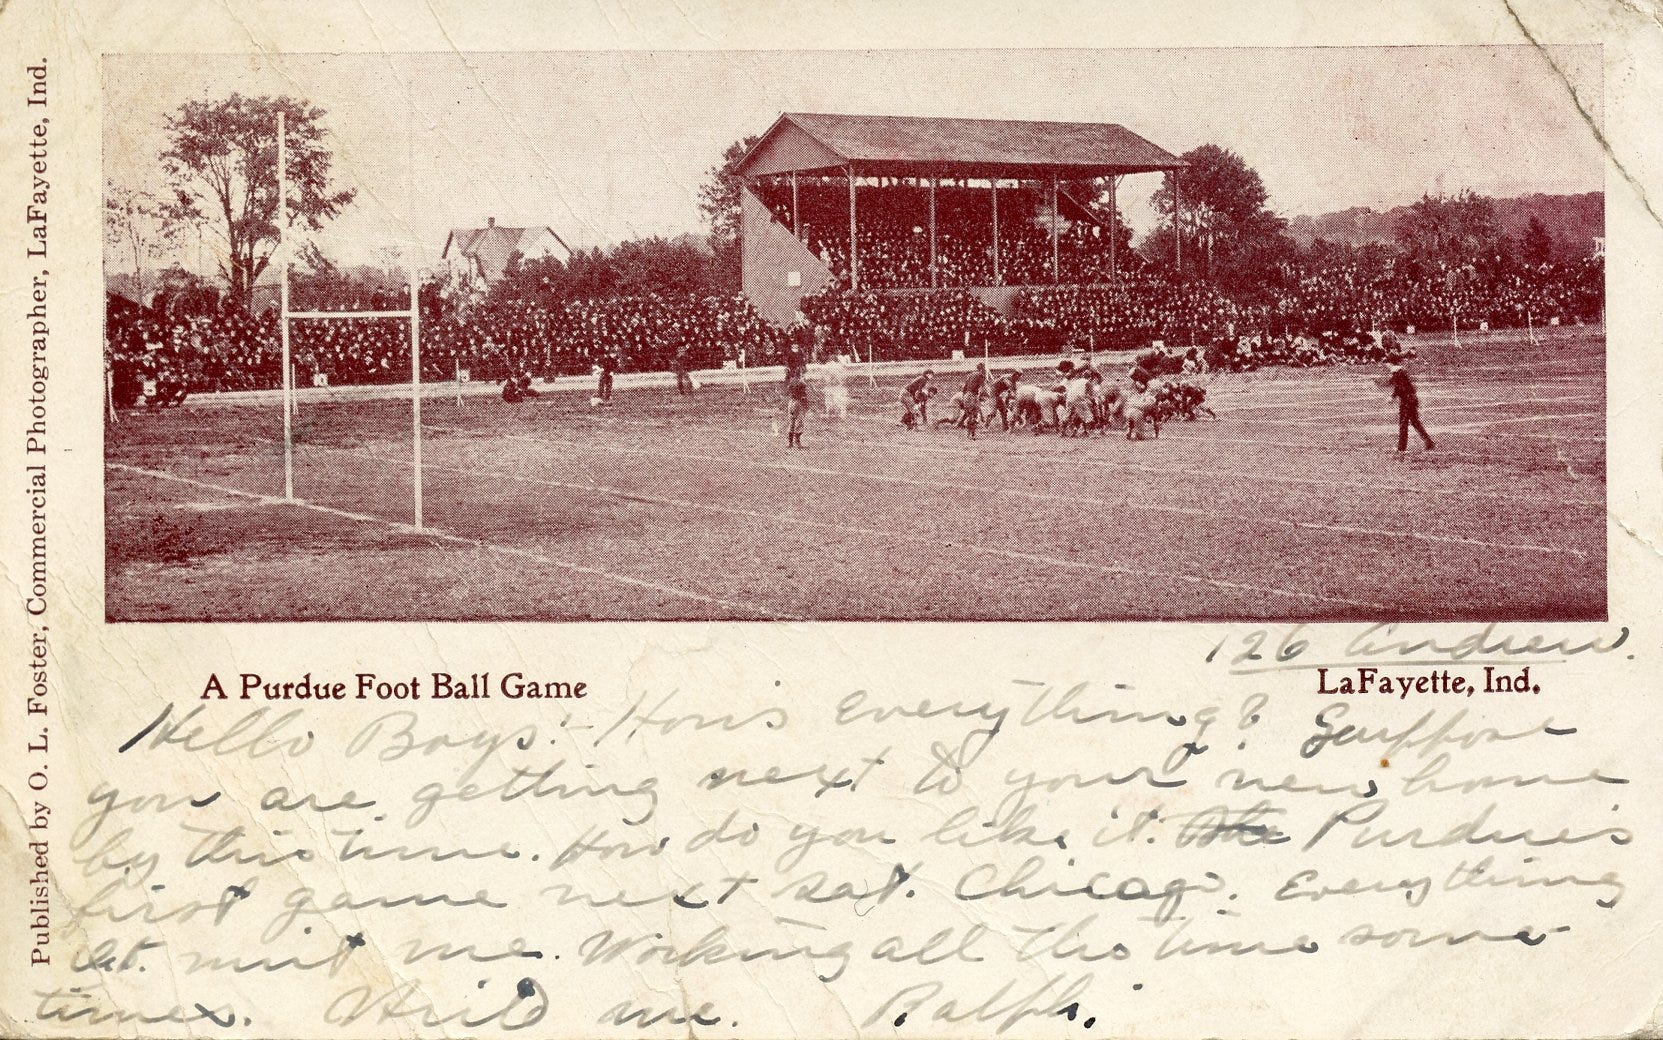 Published by O. L. Foster, Commercial Photographer, LaFayette, Ind.
126 Andrew.
A Purdue Foot Ball Game
LaFayette, Ind.
Hello Boys:- How's everything? Suppose
you are getting next to your new home
by this time. How do you like it. Purdue's
first game next sat. Chicago. Everything
with me. Working all the time some-
times. Write me. Ralph.